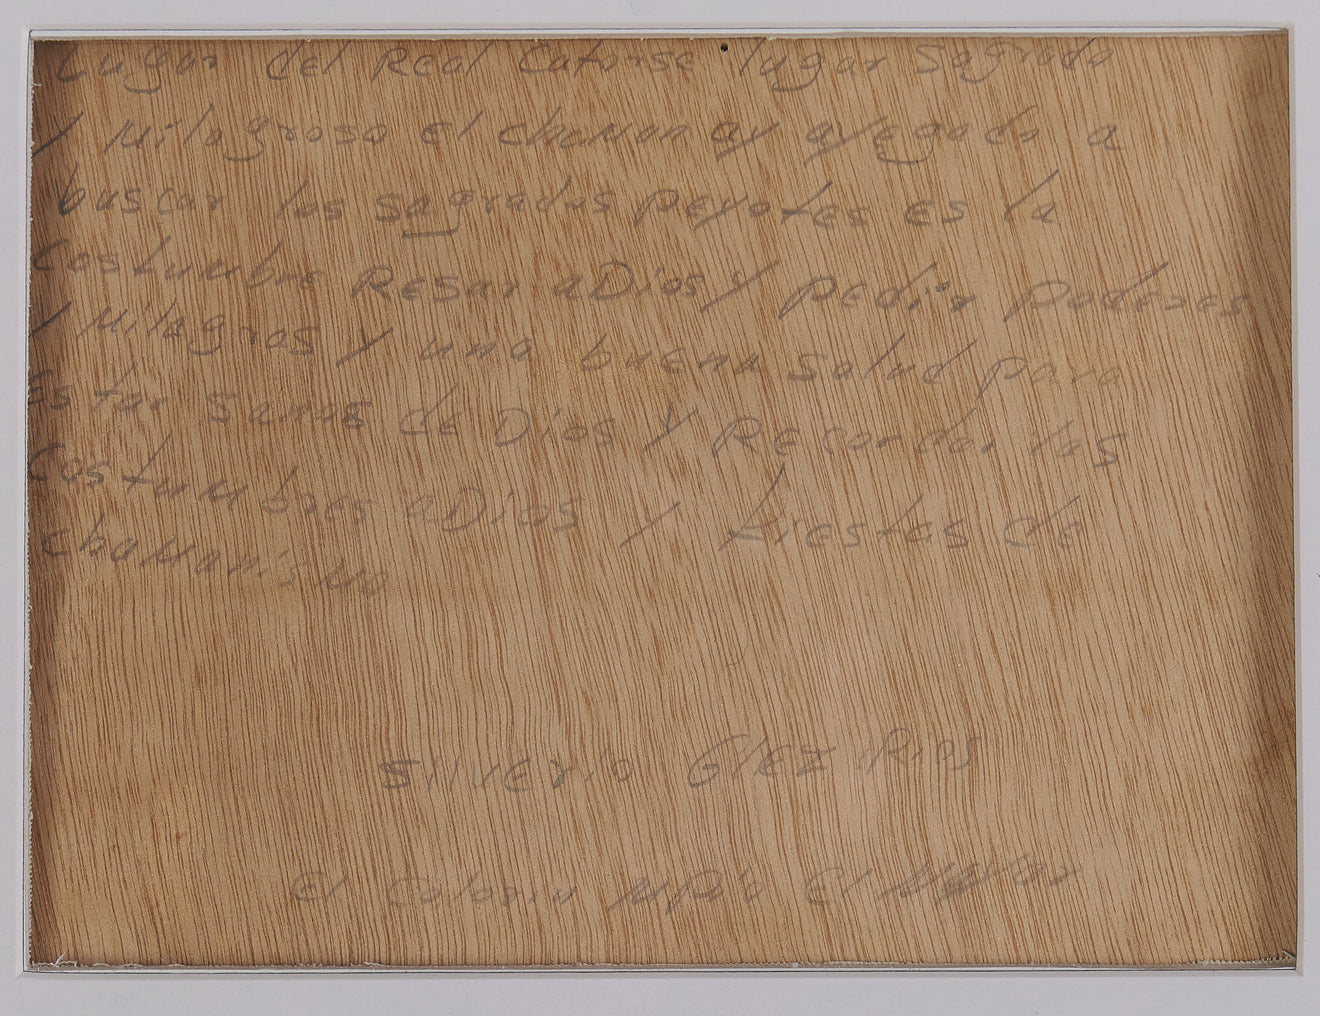 Lugar del Real Catorse lugar Sagrado
y Milagroso el chaman ay ayegado a
buscar los sagrados peyotes es la
Costumbre Resar aDios y pedir poderes
y Milagros y una buena salud para
Estar sanos de Dios y Recordar las
Costumbres aDios y fiestas de
chamanismo
silverio Glez Rios
El Colorin Mpio El